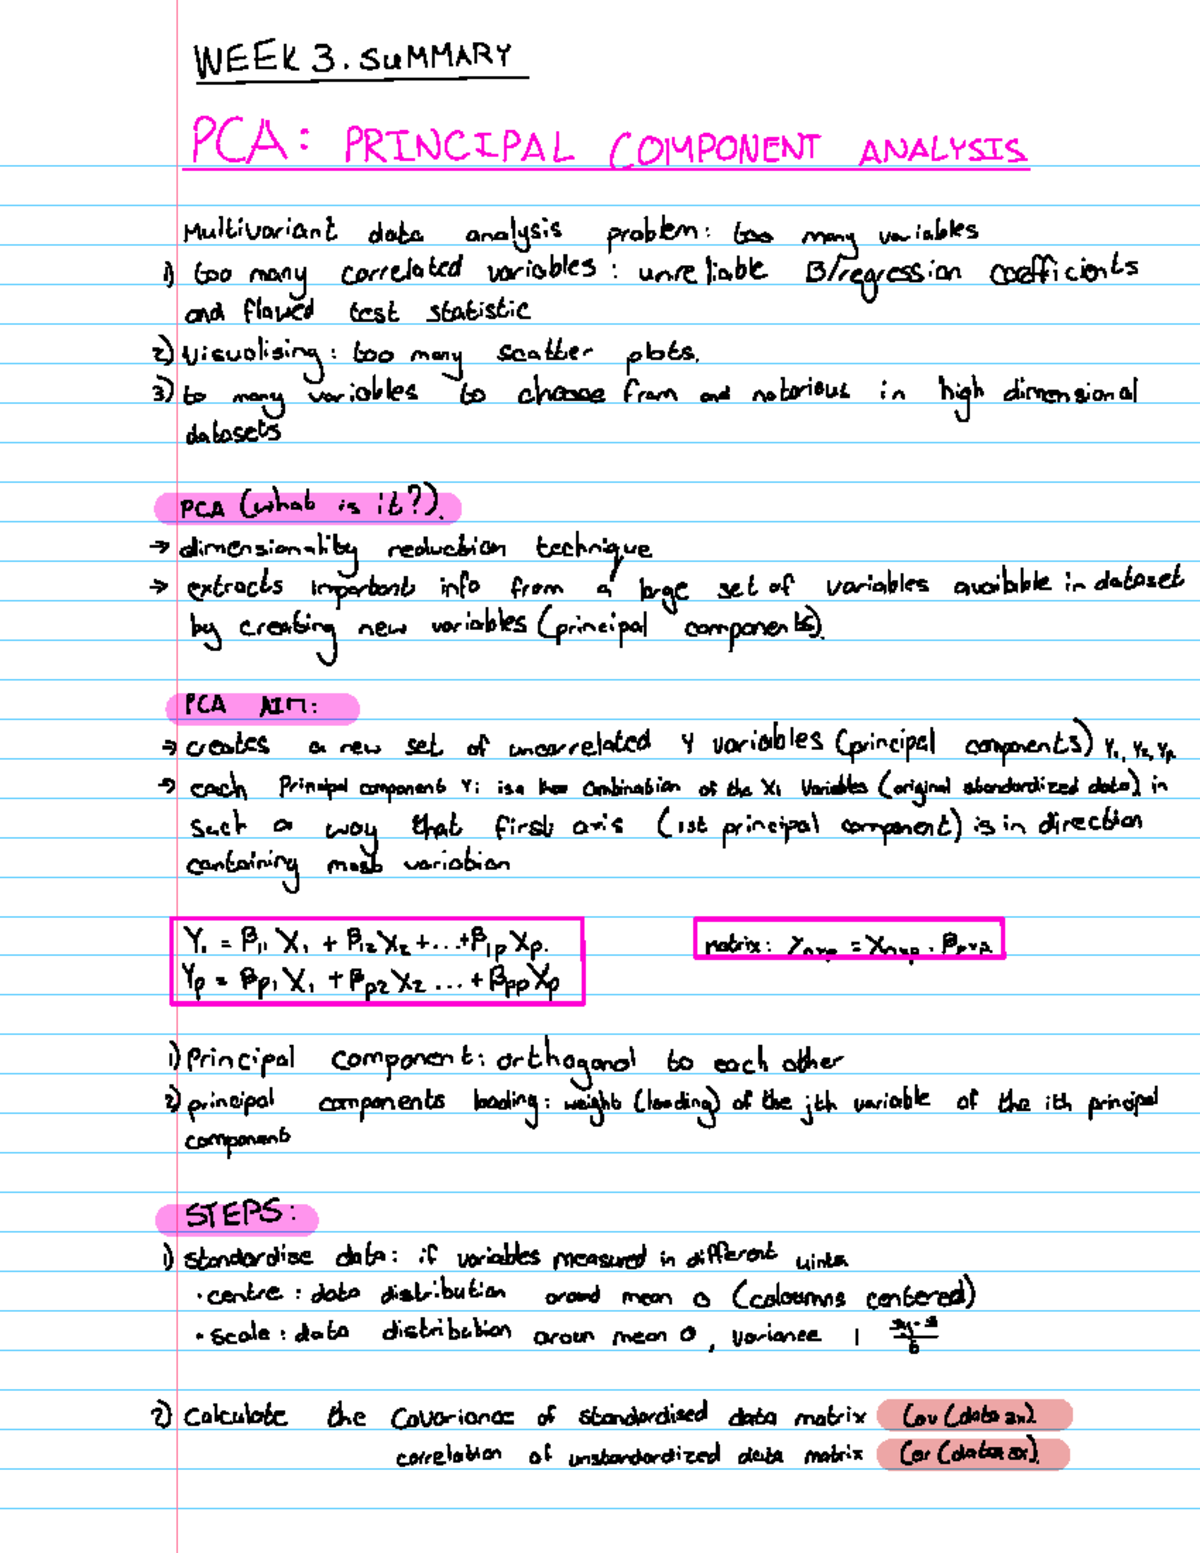 WEEK 3. SUMMARY
PCA: PRINCIPAL COMPONENT ANALYSIS
Multivariant data analysis problem: too many variables
1) too many correlated variables: unreliable B/regression coefficients
and flawed test statistic
2) visualising: too many scatter plots.
3) to many variables to choose from and notorious in high dimensional
datasets
PCA (what is it?).
→ dimensionality reduction technique
→ extracts important info from a large set of variables available in dataset
by creating new variables (principal components).
PCA AIM:
→ creates a new set of uncorrelated Y variables (principal components) Y1, Y2, Yp
→ each Principal component Yi is a combination of the X1 Variables (original standardized data) in
such a way that first axis (1st principal component) is in direction
containing most variation
Y1 = β11 X1 + β12 X2 + ... + β1p Xp.
Yp = βp1 X1 + βp2 X2 ... + βpp Xp
matrix: Ynxp = Xnxp . βpxp
1) Principal component: orthogonal to each other
2) principal components loading: weight (loading) of the jth variable of the ith principal
component
STEPS:
1) standardise data: if variables measured in different units
• centre: data distribution around mean 0 (coloumns centered)
• scale: data distribution aroun mean 0, variance 1
2) Calculate the Covariance of standardised data matrix Cov(data sx)
correlation of unstandardized data matrix Cor(data sx).